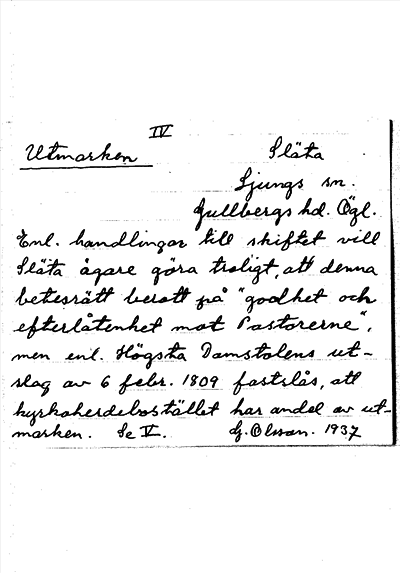 IV
Utmarken Släta
Ljungs sn.
Gullbergs hd. Ögl.
Enl. handlingar till skiftet vill
Släta ägare göra troligt, att denna
betesrätt berott på "godhet och
efterlåtenhet mot Pastorerne",
men enl. Högsta Domstolens ut-
slag av 6 febr. 1809 fastslås, att
kyrkoherdebostället har andel av ut-
marken. Se V. G. Olsson. 1937